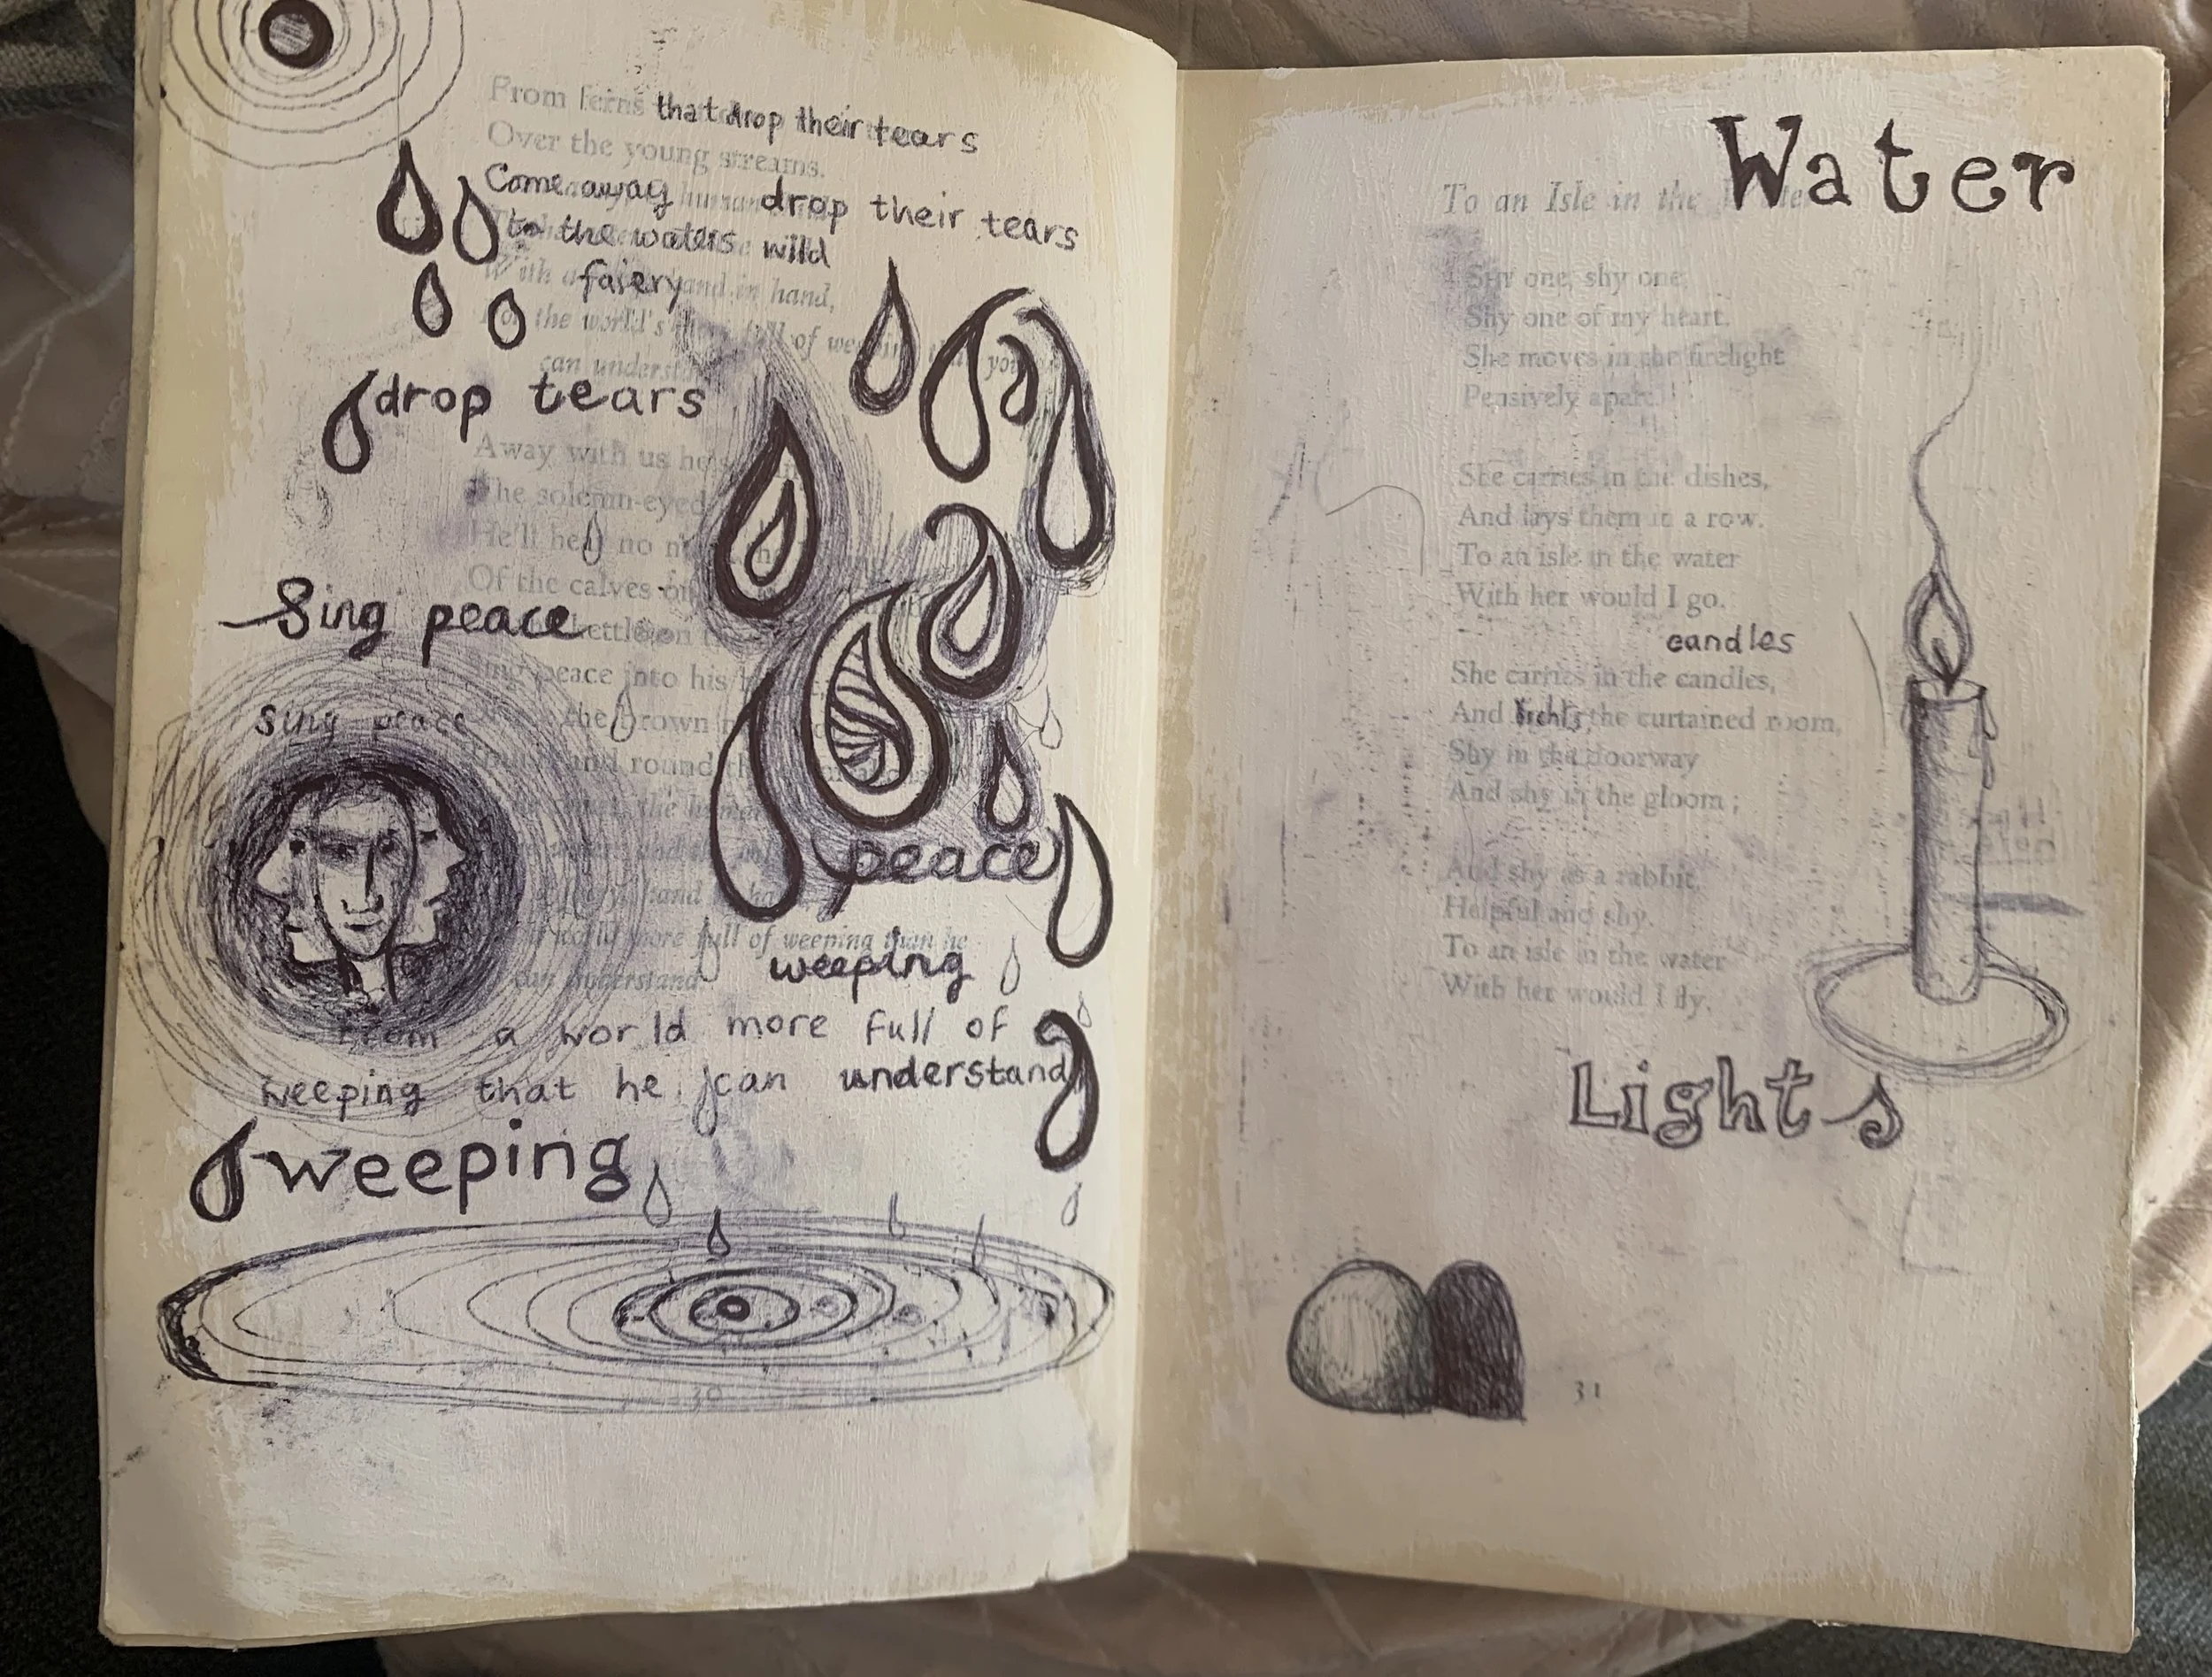 From ferns that drop their tears
Over the young streams.
Come away human drop their tears
to the waters wild
With a faiery hand in hand,
For the world's more full of weeping than you
can understand
drop tears
Away with us he's
The solemn-eyed
He'll hear no
Of the calves on
Sing peace
kettle on
Sing peace into his
sing peace
the brown
round and round
the
peace
hand
world more full of weeping than he
can understand.
weeping
from a world more full of
weeping that he can understand
weeping
30
Water
To an Isle in the
Shy one, shy one,
Shy one of my heart.
She moves in the firelight
Pensively apart.
She carries in the dishes,
And lays them in a row.
To an isle in the water
With her would I go.
candles
She carries in the candles,
And lights the curtained room,
Shy in the doorway
And shy in the gloom;
And shy as a rabbit,
Helpful and shy.
To an isle in the water
With her would I fly.
Lights
31